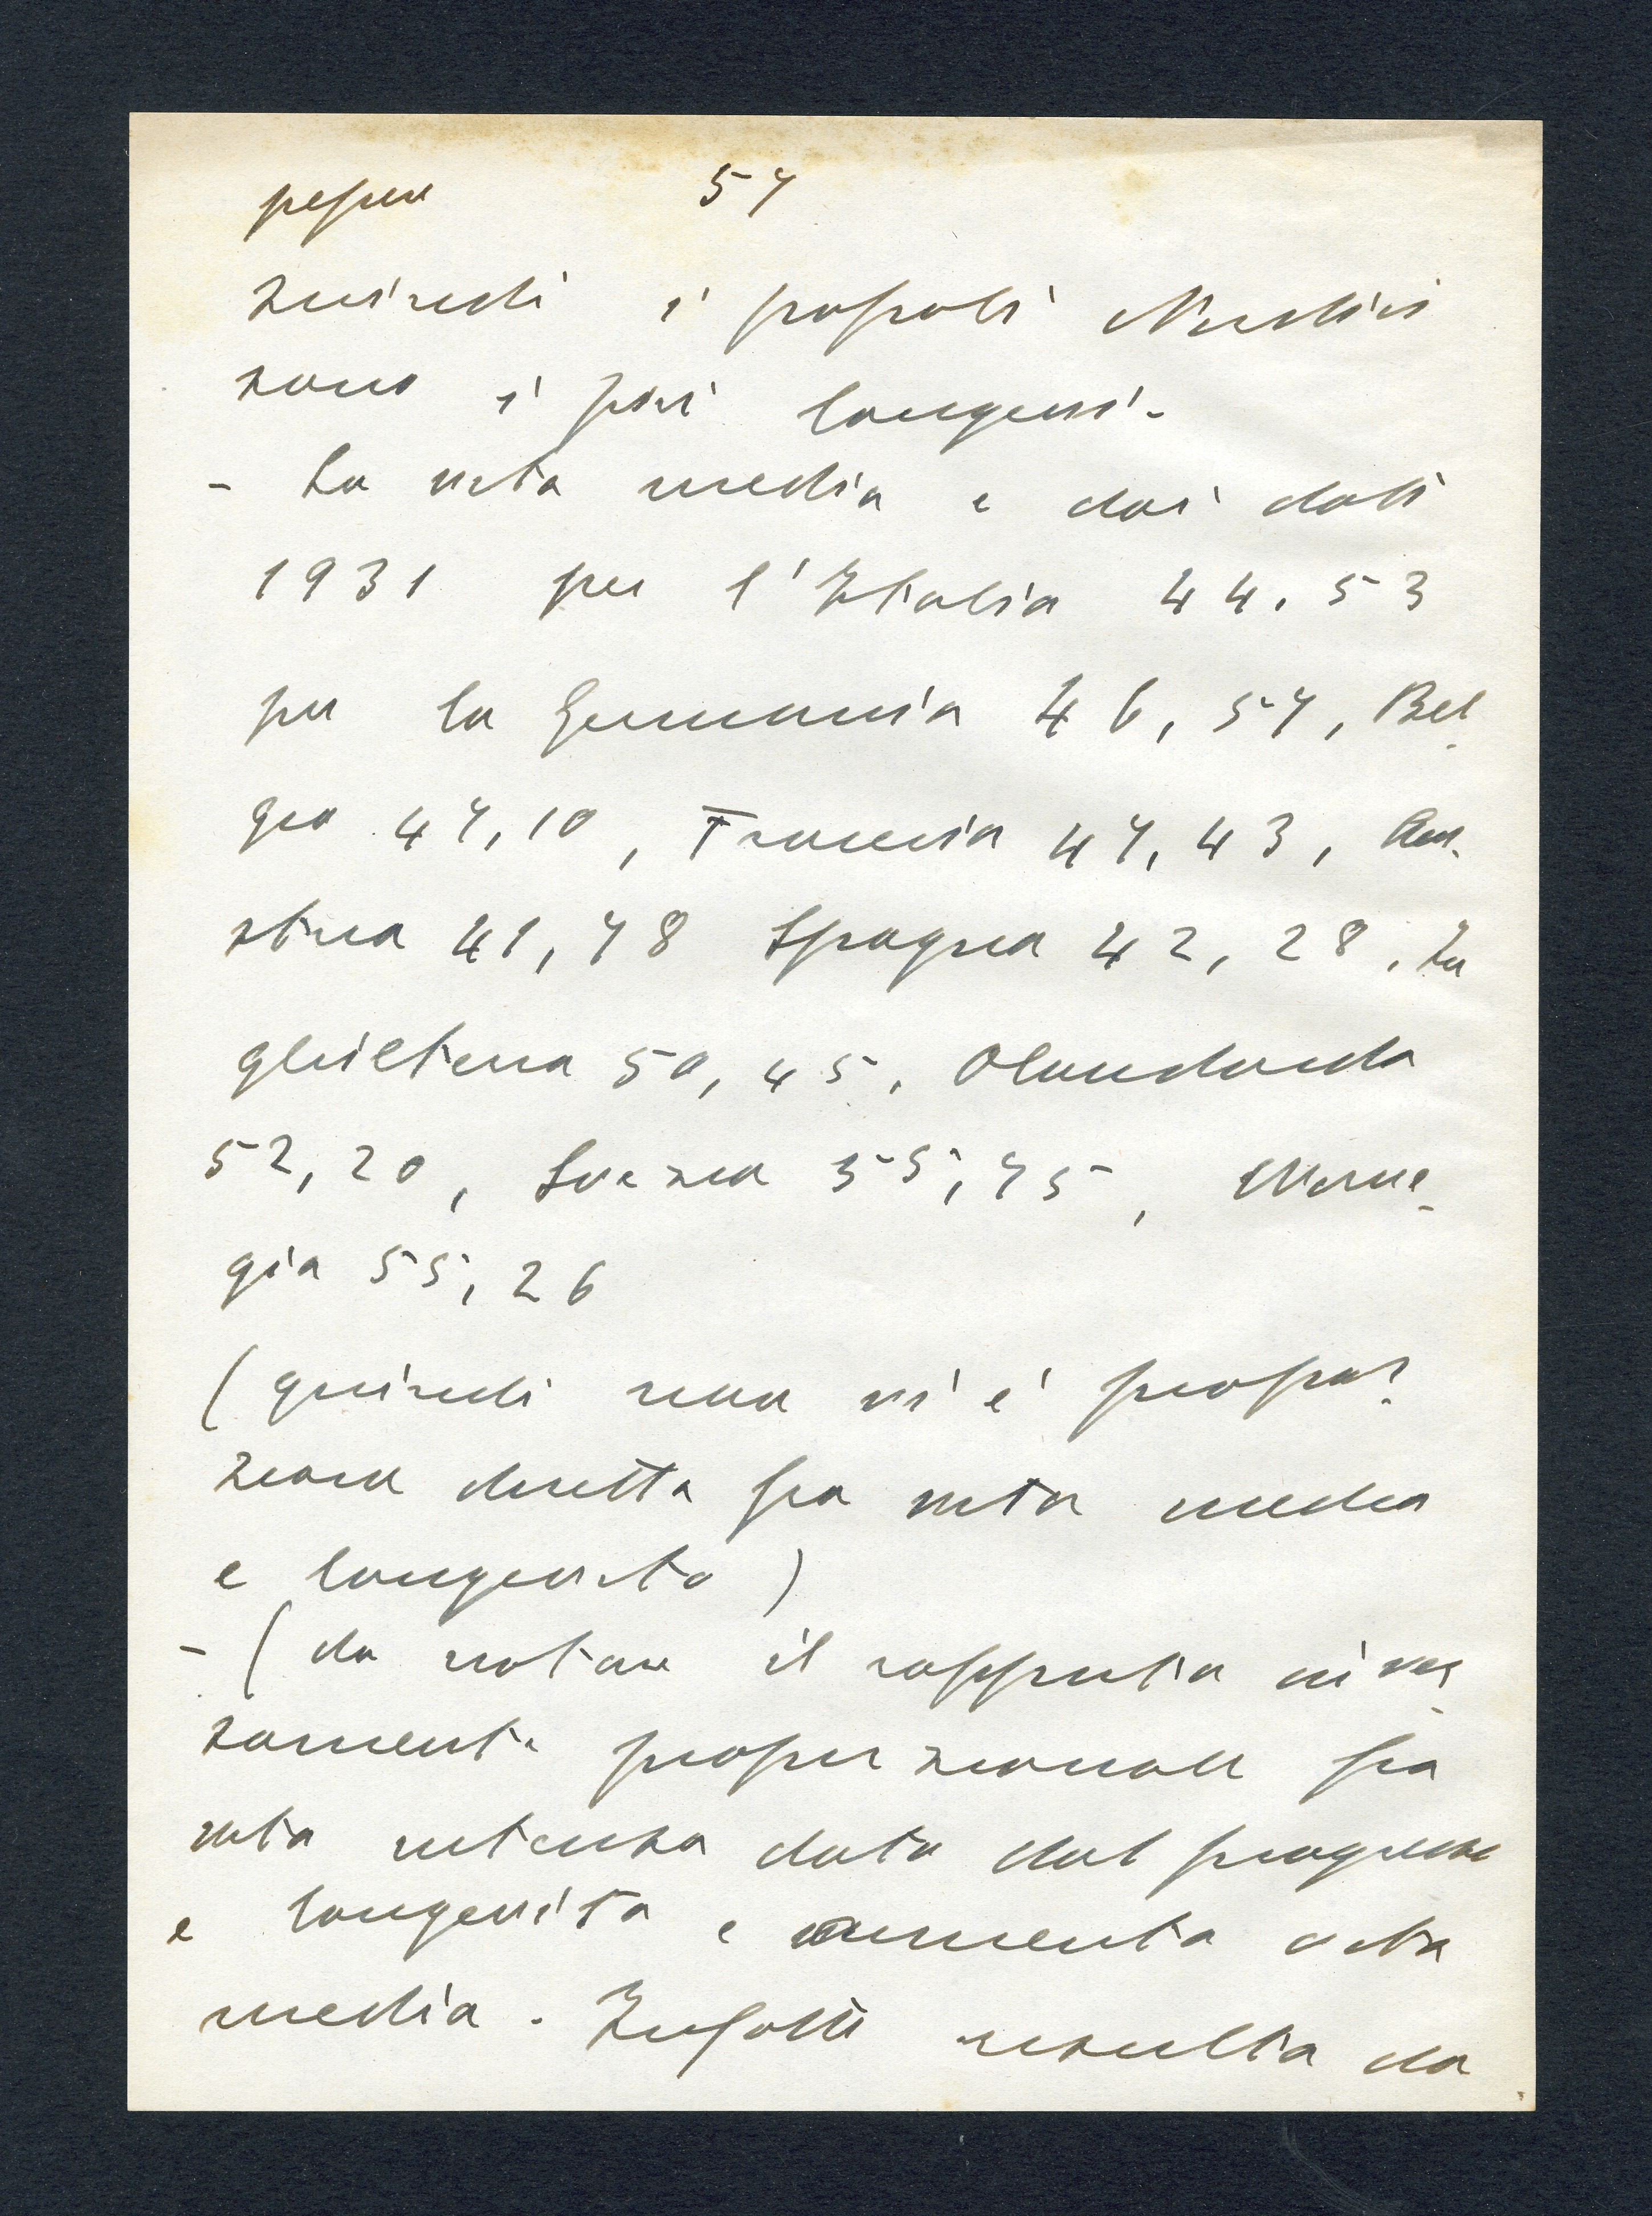 57
quindi i popoli Nordici
sono i più longevi -
- La vita media e dai dati
1931 per l'Italia 44.53
per la Germania 46,57, Bel-
gio 47,10, Francia 47,43, Au-
stria 41,78 Spagna 42,28. In
ghilterra 50,45. Olandanda
52,20, Svezia 55,75, Norve-
gia 55,26
(quindi non vi è propor-
zione diretta fra vita media
e longevità)
- (da notare il rapporto inver-
samente proporzionale fra
vita intensa data dal progresso
e longevità e aumento vita
media. Infatti risulta da